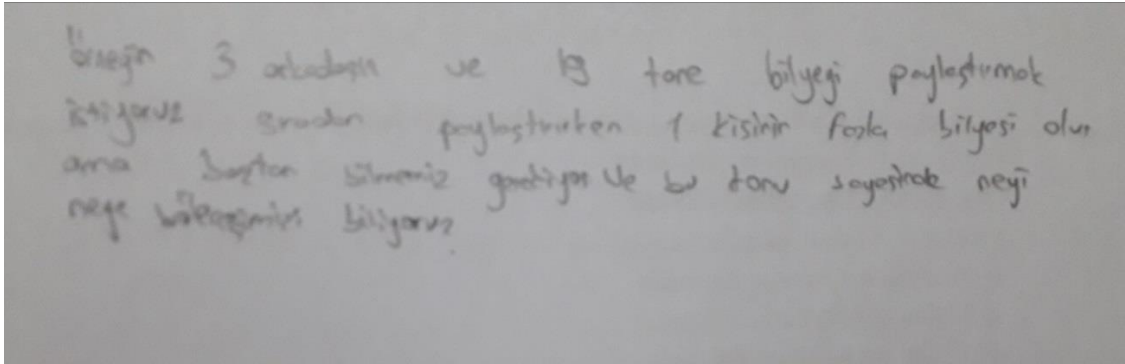 Örneğin 3 arkadaşın ve 19 tane bilyegi paylaştırmak
istiyoruz sıradan paylaştırırken 1 kişinin fazla bilyesi olur
ama baştan bilmemiz gerekiyor ve bu konu sayesinde neyi
neye böleceğimizi biliyoruz